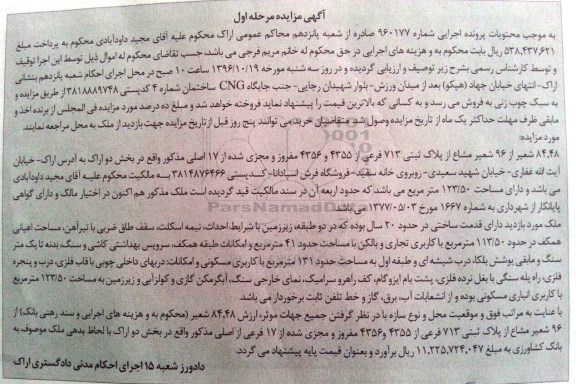 آگهی مزایده مرحله اول
به موجب محتویات پرونده اجرایی شماره ۹۶۰۱۷۷ صادره از شعبه پانزدهم محاکم عمومی اراک محکوم علیه آقای مجید داودآبادی محکوم به پرداخت مبلغ
۵۳۸,۴۳۷,۶۲۱ ریال بابت محکوم به و هزینه های اجرایی در حق محکوم له خانم مریم فرجی می باشد، حسب تقاضای محکوم له اموال ذیل توسط این اجرا توقیف
و توسط کارشناس رسمی بشرح زیر توصیف و ارزیابی گردیده و در روز سه شنبه مورخه ۱۳۹۶/۱۰/۱۹ ساعت ۱۰ صبح در محل اجرای احکام شعبه پانزدهم بنشانی
اراک-انتهای خیابان جهاد (هپکو) بعد از میدان ورزش-بلوار شهیدان رجایی- جنب جایگاه CNG ساختمان شماره ۴ کدپستی ۳۸۱۸۸۸۹۷۴۸ از طریق مزایده و
به سبک چوب زنی به فروش می رسد و به کسانی که بالاترین قیمت را پیشنهاد نماید فروخته خواهد شد و مبلغ ده درصد مورد مزایده فی المجلس از برنده اخذ و
مابقی ظرف مهلت حداکثر یک ماه از تاریخ مزایده وصول شد. متقاضیان خرید می توانند پنج روز قبل از تاریخ مزایده جهت بازدید از ملک به محل مراجعه نمایند.
مورد مزایده:
۸۴,۴۸ شعیر از ۹۶ شعیر مشاع از پلاک ثبتی ۷۱۳ فرعی از ۴۳۵۵ و ۴۳۵۶ مفروز و مجزی شده از ۱۷ اصلی مذکور واقع در بخش دو اراک به آدرس اراک- خیابان
آیت الله غفاری- خیابان شهید سعیدی- روبروی خانه سفید- فروشگاه فرش اسپادانا- کدپستی ۳۸۱۴۸۷۶۴۶۶ به مالکیت محکوم علیه آقای مجید داودآبادی
می باشد و دارای مساحت ۱۲۳/۵۰ متر مربع می باشد که حدود اربعه آن در سند مالکیت قید گردیده است ملک مذکور هم اکنون در اختیار مالک و دارای گواهی
پایانکار از شهرداری به شماره ۱۶۶۷ مورخ ۱۳۷۷/۰۵/۰۳ می باشد.
ملک مورد بازدید دارای قدمت ساختی در حدود ۲۰ سال بوده که در دو طبقه، زیرزمین با شرایط احداث، نیمه اسکلت، سقف طاق ضربی با تیرآهن، مساحت اعیانی
همکف در حدود ۱۱۳/۵۰ مترمربع با کاربری تجاری و بالکن با مساحت حدود ۴۱ مترمربع و امکانات طبقه همکف، سرویس بهداشتی کاشی و سنگ، بدنه تا یک متر
سنگ و مابقی پوشش بلکا، درب شیشه ای و طبقه اول به مساحت حدود ۱۳۱ مترمربع با کاربری مسکونی و امکانات: دربهای داخلی چوبی با قاب فلزی، درب و پنجره
فلزی، راه پله سنگی با بغل نرده فلزی، پشت بام ایزوگام، کف راهرو سرامیک، نمای خارجی سنگ، آبگرمکن گازی و کولرآبی و زیرزمین به مساحت ۱۲۳/۵۰ مترمربع
با کاربری انباری مسکونی بوده و از انشعابات آب، برق، گاز و خط تلفن ثابت برخوردار می باشد.
با عنایت به مراتب فوق و موقعیت محل و نوع سازه با در نظر گرفتن جمیع جهات موثر، ارزش ۸۴,۴۸ شعیر (محکوم به و هزینه های اجرایی و سند رهنی بانک) از
۹۶ شعیر مشاع از پلاک ثبتی ۷۱۳ فرعی از ۴۳۵۵ و ۴۳۵۶ مفروز و مجزی شده از ۱۷ فرعی از اصلی مذکور واقع در بخش دو اراک با لحاظ بدهی ملک موصوف به
بانک کشاورزی به مبلغ ۱۱,۲۲۵,۷۲۴,۰۴۷ ریال برآورد و بعنوان قیمت پایه پیشنهاد می گردد.
دادورز شعبه ۱۵ اجرای احکام مدنی دادگستری اراک
ParsNamadData